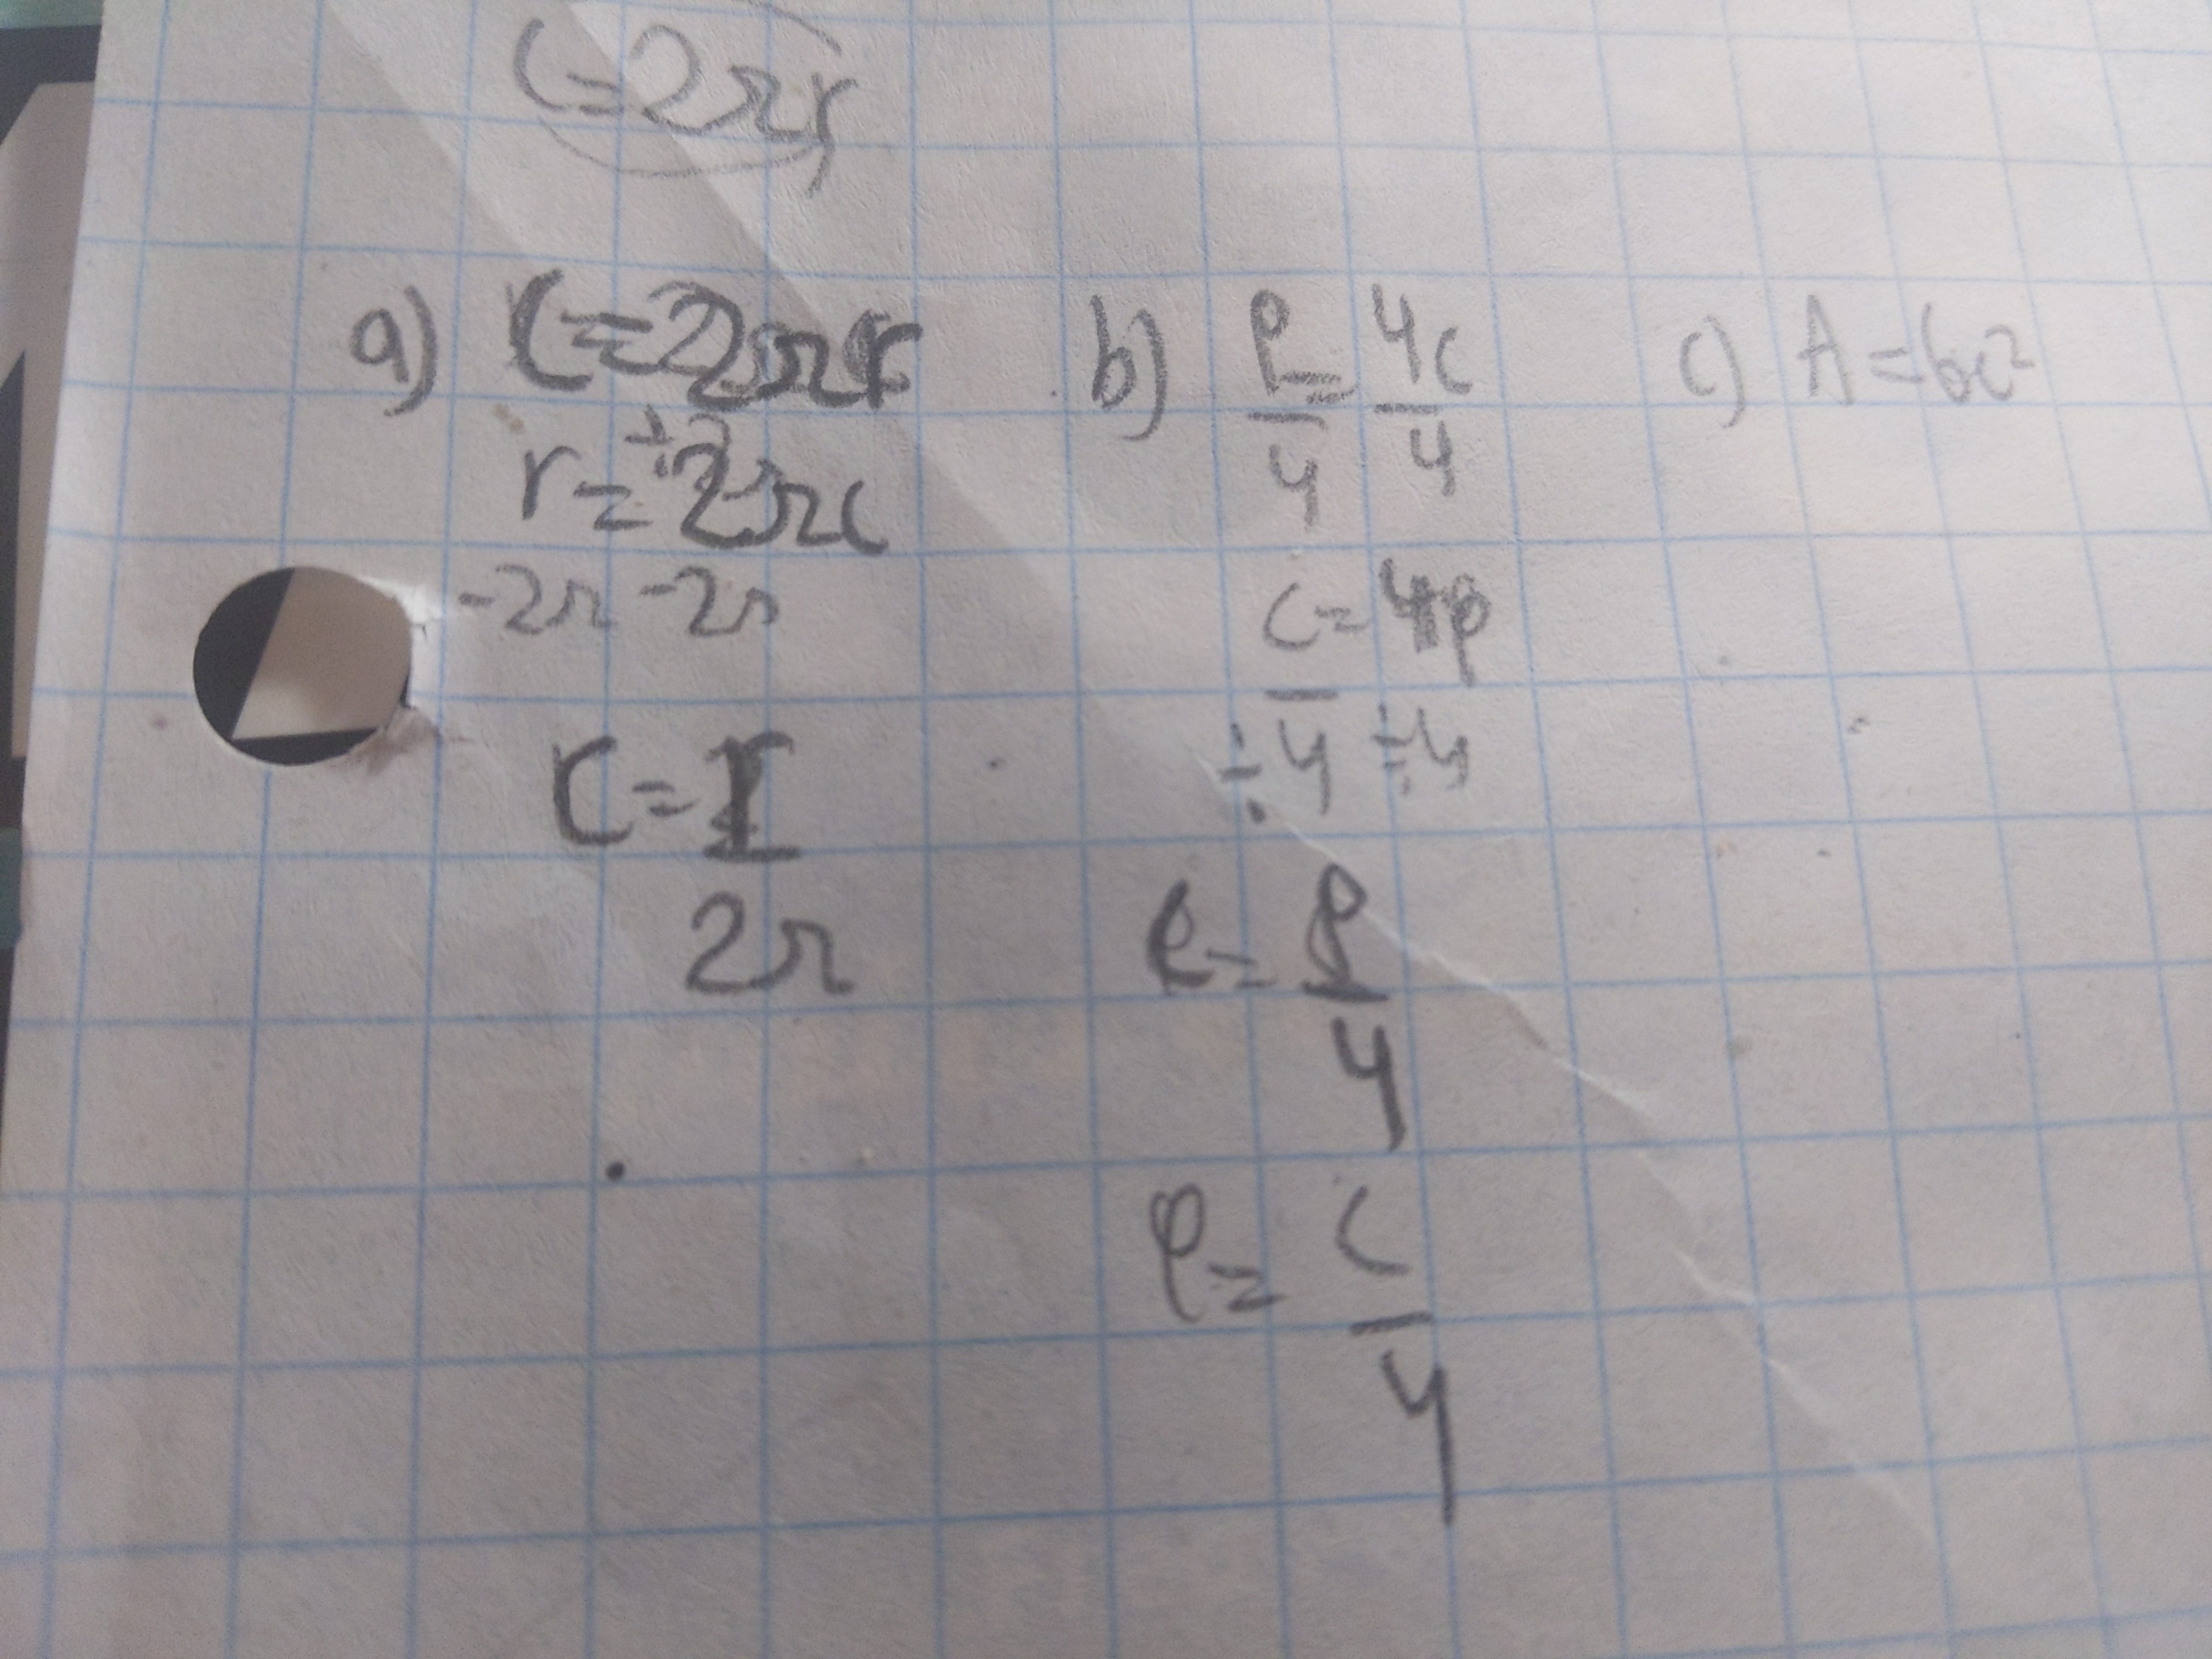 C=2πr
a) C=2πr
r=÷2πc
-2π -2π
C=r
2π
b) P=4c
4 4
c=4p
÷4 ÷4
c=P
4
P=c
4
c) A=6c²